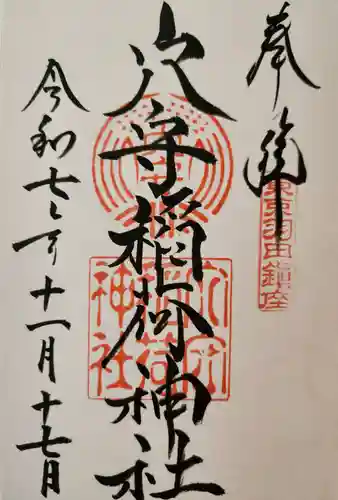 奉拝
東京羽田鎮座
穴守稲荷神社
穴守稲荷神社
令和七年十一月十七日